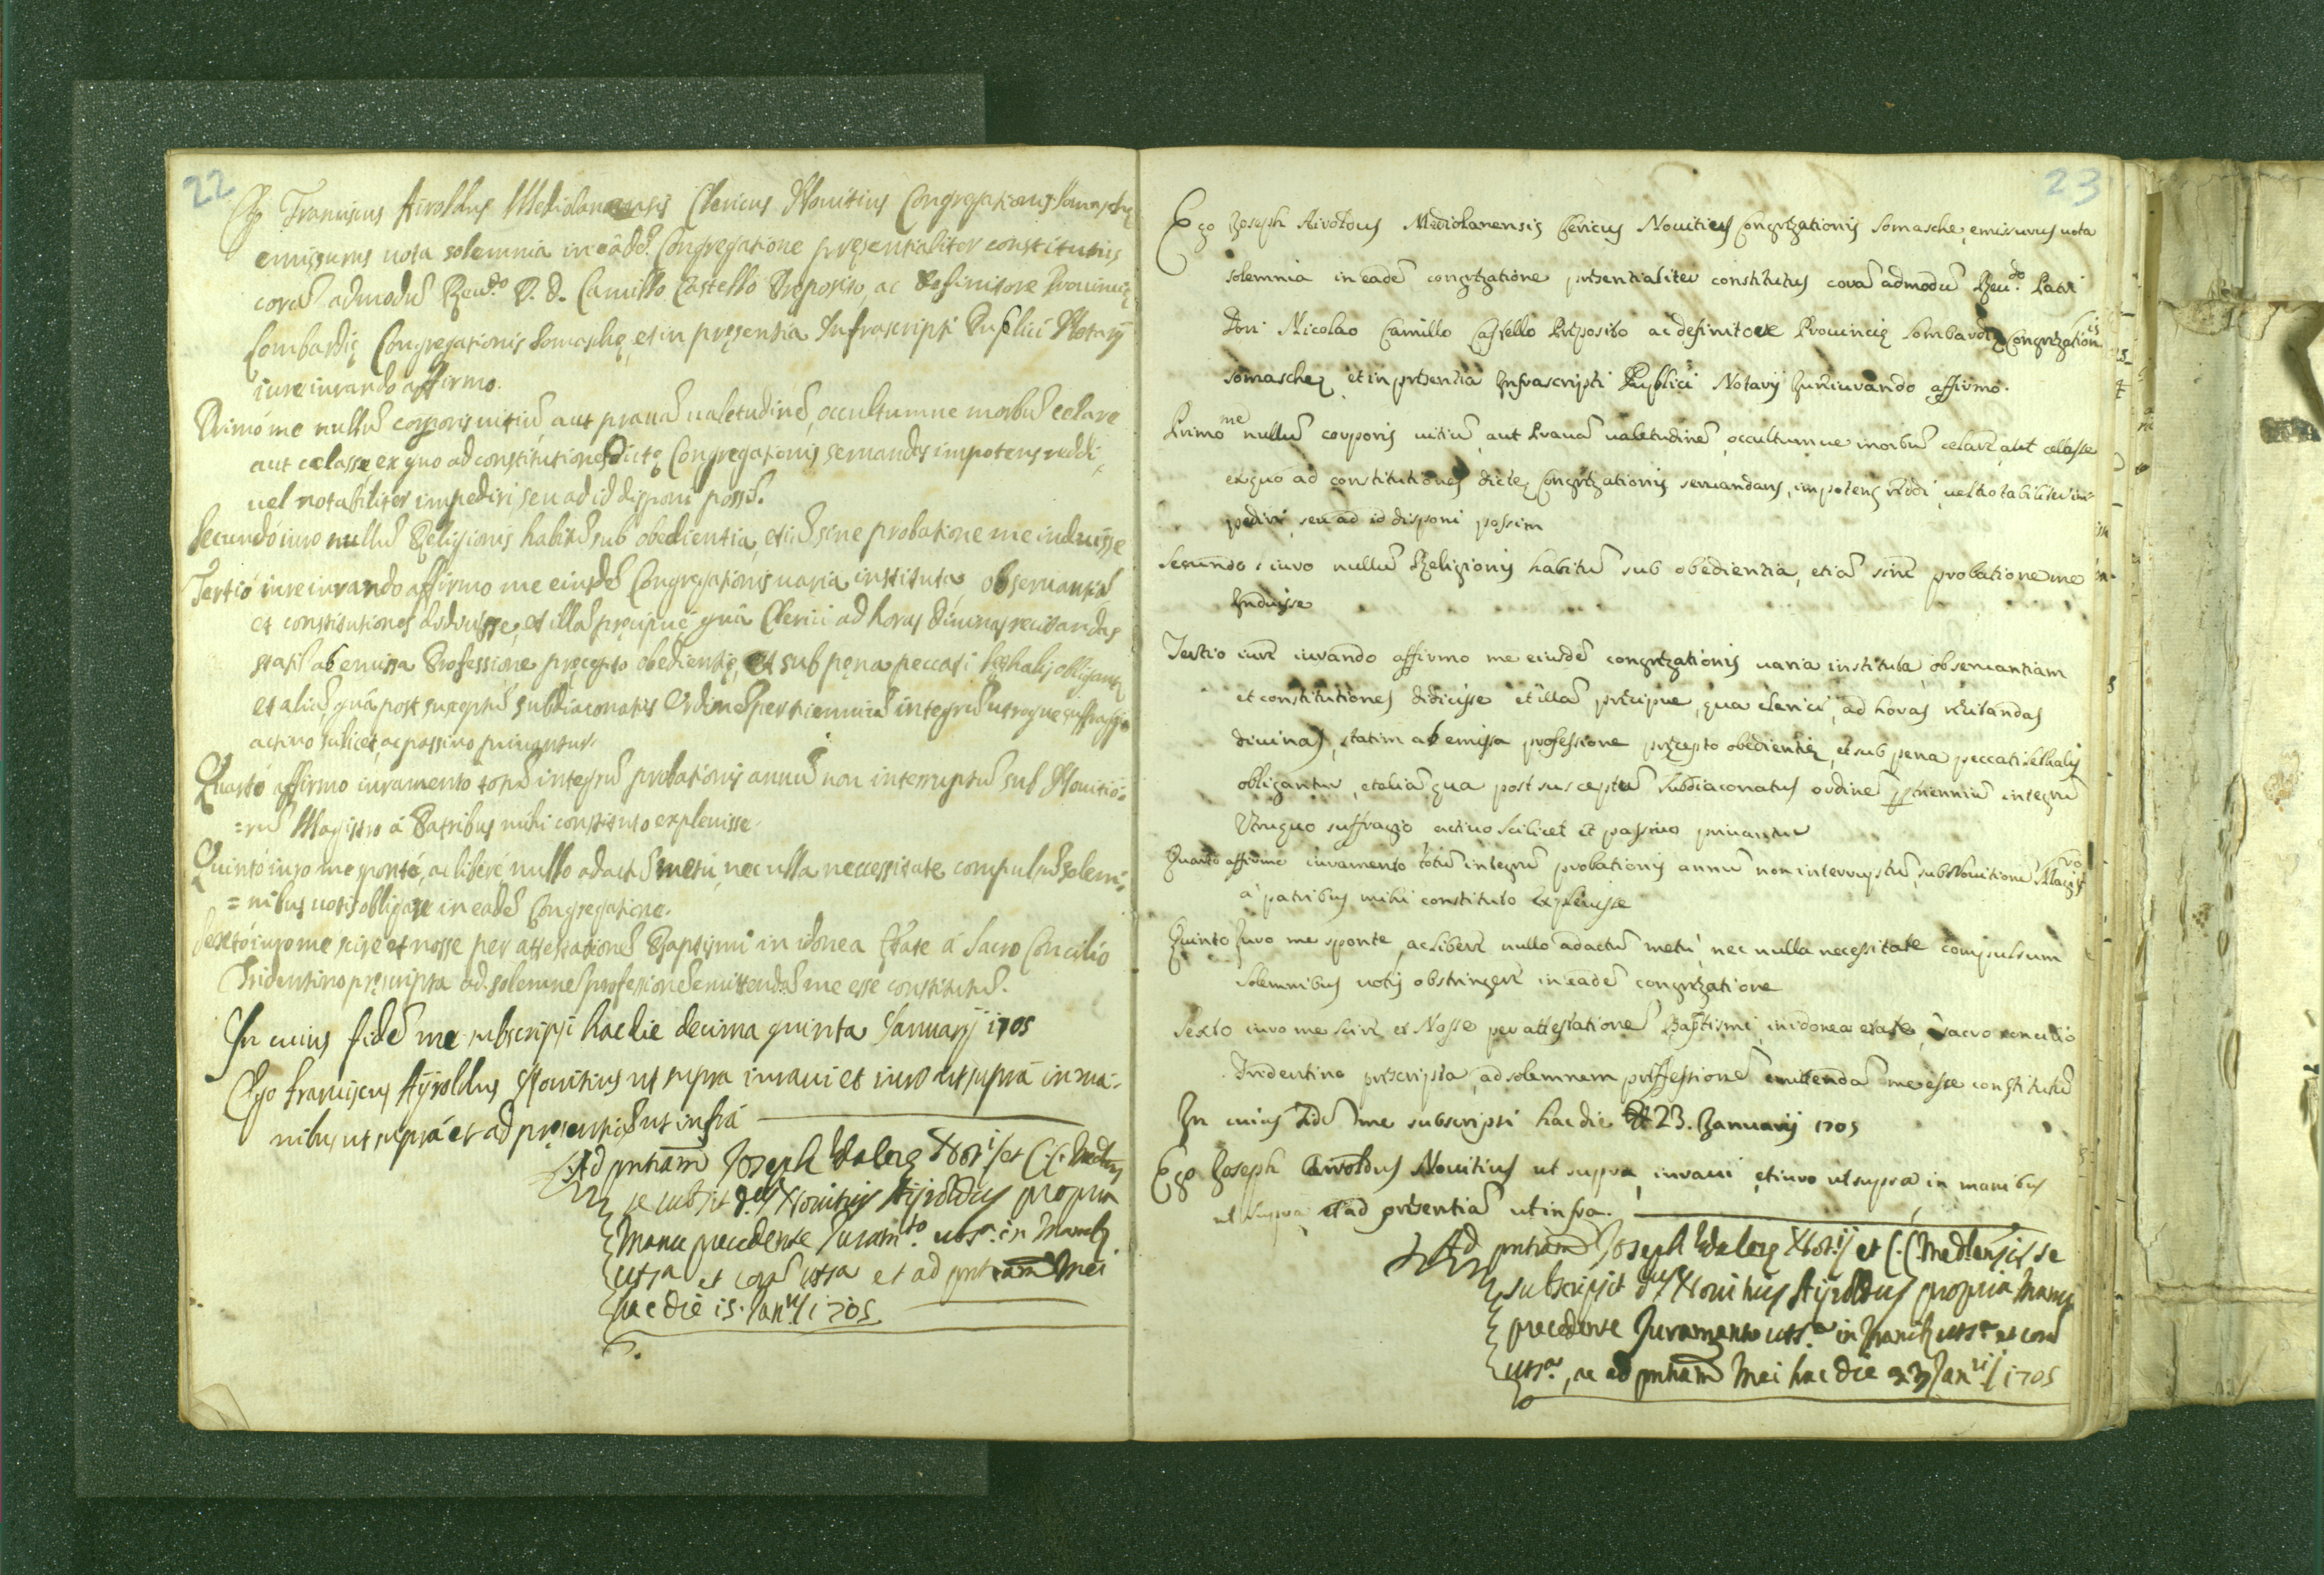 22
Ego Franciscus Airoldus Mediolanensis Clericus Nouitius Congregationis Somaschę
emissurus uota solemnia in eâdẽ Congregatione pręsentialiter constitutus
corã admodũ Reu.do P. D. Camillo Castello Preposito, ac Definitore Prouincię
Lombardię Congregationis Somaschę, et in pręsentia Infrascripti Publici Notarij
iure iurando affirmo.
Primò me nullũ corporis uitiũ, aut prauã ualetudinẽ, occultumue morbũ celare
aut celasse, ex quo ad constitutiones dictę Congregationis seruandas impotens reddi,
uel notabiliter impediri, seu ad id disponi possĩ.
Secundò iuro nullũ Religionis habitũ sub obedientia, etiã sine probatione me induisse
Tertiò iure iurando affirmo me eiusdẽ Congregationis uaria instituta, obseruantiã
et constitutiones didicisse, et illã pręcipuè quâ Clerici ad horas diuinas recitandas
statĩ ab emissa Professione pręcepto obedientię, et sub pęna peccati lęthalis obligantur
et aliã quâ post susceptũ subdiaconatus Ordinẽ per triennium integrũ utroque suffragio
actiuo scilicet, ac passiuo priuantur.
Quartò affirmo iuramento totũ integrũ probationis annũ non interruptũ sub Nouitio=
=rũ Magistro à Patribus mihi constituto expleuisse.
Quintò iuro me sponte, ac liberè nullo adactũ metu, nec ulla neccessitate compulsũ solem=
=nibus uotis obligare in eadẽ Congregatione.
Sextò iuro me scire et nosse per attestationẽ Baptismi in idonea Ętate à Sacro Concilio
Tridentino pręscripta ad solemnẽ professionẽ emittendã me esse constitutũ.
In cuius fidẽ me subscripsi hac die decima quinta Januarij 1705
Ego Franciscus Aÿroldus Nouitius ut supra iuraui et iuro ut suprà in ma=
nibus ut suprà et ad pręsentiã ut infrà
Ad pntiam Joseph Valerę Not.ij et C. C. Mediol.
se subsit d.us Nouitius Aÿroldus propria
Manu precedente Juram.to uts.a in Manib.
uts.a et corã uts.a et ad pntiam Mei
hac die 15. Jan.rij 1705
23
Ego Joseph Airoldus Mediolanensis Clericus Nouitius Congregationis Somasche, emissurus uota
solemnia in eadẽ congregatione presentialiter constitutus corã admodũ Reu.do Patri
Don Nicolao Camillo Castello Preposito ac definitore Prouincię Lombardię Congregationis
Somaschę et in presentia Infrascripti Publici Notarij Jureiurando affirmo.
Primo me nullũ corporis uitiũ, aut Prauã ualetudinẽ, occultumue morbũ celare, aut celasse
ex quo ad constitutiones dictę Congregationis seruandas, impotens reddi, uel notabiliter im=
pediri, seu ad id disponi possim
Secundo iuro nullũ Religionis habitũ sub obedientia, etiã sine probatione me
Induisse
Tertio iure iurando affirmo me eiusdẽ congregationis uaria instituta, obseruantiam
et constitutiones didicisse et illã precipue, qua clerici, ad horas recitandas
diuinas, statim ab emissa professione precepto obedientię, et sub pena peccati lethalis
obligantur, et aliã qua post susceptũ subdiaconatus ordinẽ per triennium integrũ
Utroque suffragio actiuo scilicet et passiuo priuantur
Quarto affirmo iuramento totũ integrũ probationis annũ non interruptũ, sub Nouitiorũ Magistro
a patribus mihi constituto expleuisse
Quinto Juro me sponte, ac libere nullo adactũ metu, nec nulla necessitate compulsum
solemnibus uotis obstringere in eadẽ congregatione
Sexto iuro me scire et Nosse per attestationẽ Baptismi, in idonea etate, à sacro concilio
Tridentino prescripta, ad solemnem professionẽ emittendã me esse constitutũ
In cuius Fidẽ me subscripsi hac die 23. Januarij 1705
Ego Joseph Airoldus Nouitius ut supra, iuraui, et iuro ut supra in manibus
ut supra et ad presentiã ut infra.
Ad pntiam Joseph Valerę Not.ij et C. C. Medlensis se
subscripsit d.us Nouitius Aÿroldus propria Manu
precedente Juramento uts.a in Manib. uts.a et corã
uts.a, ac ad pntiam Mei hac die 23 Jan.rij 1705